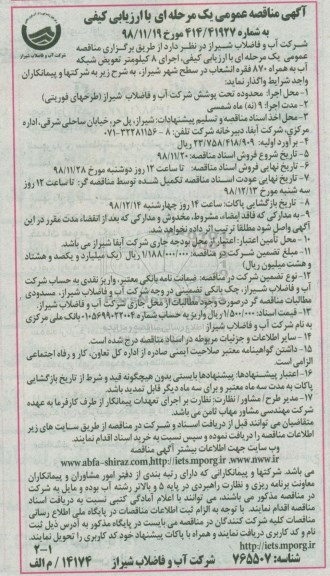 آگهی مناقصه عمومی یک مرحله ای با ارزیابی کیفی
به شماره ۴۱۴/۴۱۹۲۷ مورخ ۹۸/۱۱/۱۹
شرکت آب و فاضلاب شیراز
شرکت آب و فاضلاب شیراز در نظر دارد از طریق برگزاری مناقصه
عمومی یک مرحله ای با ارزیابی کیفی، اجرای ۸ کیلومتر تعویض شبکه
آب به همراه ۸۷۰ فقره انشعاب در سطح شهر شیراز، به شرح زیر به شرکتها و پیمانکاران
واجد شرایط واگذار نماید:
۱- محل اجرا: محدوده تحت پوشش شرکت آب و فاضلاب شیراز (طرحهای فوریتی)
۲- مدت اجرا: ۹ (نه) ماه شمسی
۳- محل اخذ اسناد مناقصه و تسلیم پیشنهادات: شیراز، پل حر، خیابان ساحلی شرقی، اداره
مرکزی شرکت آبفا، دبیرخانه شرکت تلفن: ۸ - ۳۲۲۸۱۱۵۶-۰۷۱
۴- برآورد اولیه: ۲۳/۷۵۸/۴۱۸/۹۰۹ ریال
۵- تاریخ شروع فروش اسناد مناقصه: ۹۸/۱۱/۲۰
۶- تاریخ نهایی فروش اسناد مناقصه: تا ساعت ۱۲ روز دوشنبه مورخ ۹۸/۱۱/۲۸
۷- تاریخ نهایی عودت اسناد مناقصه تکمیل شده توسط مناقصه گر: تا ساعت ۱۲ روز
سه شنبه مورخ ۹۸/۱۲/۱۳
۸- تاریخ بازگشایی پاکات: ساعت ۱۴ روز چهارشنبه ۹۸/۱۲/۱۴
۹- به مدارکی که فاقد امضاء، مشروط، مخدوش و مدارکی که بعد از انقضاء مدت مقرر در این
آگهی واصل شود مطلقا ترتیب اثر داده نخواهد شد.
۱۰- محل تأمین اعتبار: اعتبار از محل بودجه جاری شرکت آبفا شیراز می باشد.
۱۱- مبلغ تضمین شرکت در مناقصه: ۱/۱۸۸/۰۰۰/۰۰۰ ریال (یک میلیارد و یکصد و هشتاد
و هشت میلیون ریال)
۱۲- نوع تضمین شرکت در مناقصه: ضمانت نامه بانکی معتبر، واریز نقدی به حساب شرکت
آب و فاضلاب شیراز، چک بانکی تضمینی در وجه شرکت آب و فاضلاب شیراز، مسدودی
مطالبات مناقصه گر درصورت وجود مطالبات از محل جاری شرکت آب و فاضلاب شیراز.
۱۳- قیمت اسناد: ۱/۵۰۰/۰۰۰ ریال واریز به حساب شماره ۰۱۰۵۶۹۹۰۲۲۰۰۴ بانک ملی مرکزی
به نام شرکت آب و فاضلاب شیراز
۱۴- سایر اطلاعات و جزئیات مربوطه در اسناد مناقصه درج شده است.
۱۵- داشتن گواهینامه معتبر صلاحیت ایمنی صادره از اداره کل تعاون، کار و رفاه اجتماعی
الزامی است
۱۶- اعتبار پیشنهادها: پیشنهادها بایستی بدون هیچگونه قید و شرط از تاریخ بازگشایی
پاکات به مدت سه ماه معتبر و برای سه ماه دیگر قابل تمدید باشد.
۱۷- مدیر طرح/ مشاور/ نظارت: نظارت بر اجرای تعهدات پیمانکار از طرف کارفرما به عهده
شرکت مهندسی مشاور مهاب ثامن می باشد.
متقاضیان می توانند قبل از دریافت اسناد و شرکت در مناقصه از طریق سایت های زیر
اطلاعات مناقصه را دریافت نموده و سپس نسبت به خرید اسناد اقدام نمایند.
وب سایت جهت اطلاعات بیشتر آگهی مناقصه
www.abfa-shiraz.com,http://iets.mporg.ir ,www.nww.ir
می باشد. شرکتها و پیمانکارانی که دارای رتبه بندی از دفتر امور مشاوران و پیمانکاران
معاونت برنامه ریزی و نظارت راهبردی در پایه ۵ و بالاتر رشته آب بوده و مایل به شرکت
در مناقصه مذکور می باشند، می توانند با اعلام آمادگی کتبی نسبت به دریافت اسناد
مناقصه اقدام نمایند. با توجه به الزام ثبت اطلاعات مناقصات در پایگاه ملی اطلاع رسانی
مناقصات کلیه شرکت کنندگان در مناقصه می بایست در پایگاه مذکور به آدرس ذیل ثبت
نام و کد کاربری دریافت نمایند و همراه با پاکات پیشنهادی خود کد کاربری را تحویل نمایند.
http://iets.mporg.ir
۲-۱
شناسه: ۷۶۵۵۰۷ شرکت آب و فاضلاب شیراز ۱۴۱۷۴ / م الف